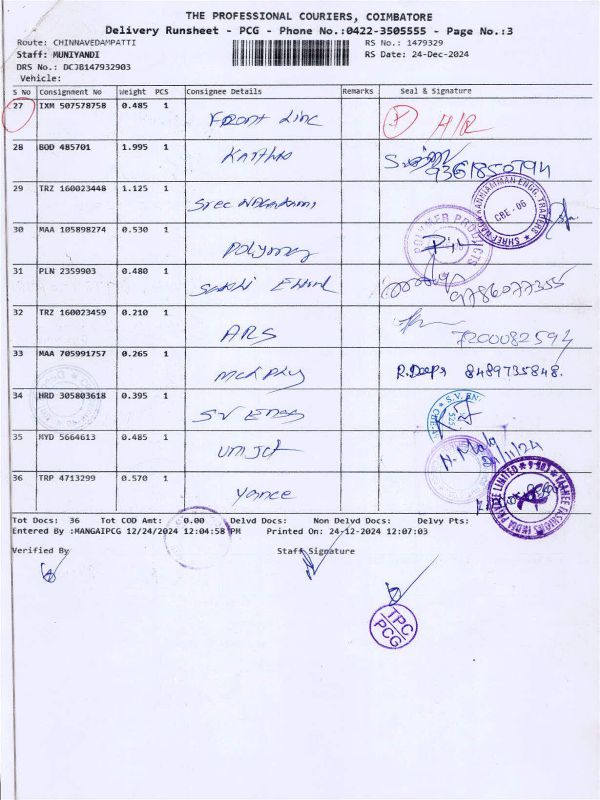 THE PROFESSIONAL COURIERS, COIMBATORE
Delivery Runsheet - PCG - Phone No.:0422-3505555 - Page No.:3
Route: CHINNAVEDAMPATTI RS No.: 1479329
Staff: MUNIYANDI RS Date: 24-Dec-2024
DRS No.: DCJB147932903
Vehicle:
S No Consignment No Weight PCS Consignee Details Remarks Seal & Signature
27 IXM 507578758 0.485 1 Front Line H/R
28 BOD 485701 1.995 1 9361850794
29 TRZ 160023448 1.125 1 CBE-06
30 MAA 105898274 0.530 1 POLYMER PRODUCTS
31 PLN 2359903 0.480 1 Sakthi 9786077355
32 TRZ 160023459 0.210 1 ARS 7200082594
33 MAA 705991757 0.265 1 R.Deepa 8489735848.
34 HRD 305803618 0.395 1 SV Engg
35 MYD 5664613 0.485 1
36 TRP 4713299 0.570 1
Tot Docs: 36 Tot COD Amt: 0.00 Delvd Docs: Non Delyd Docs: Delvy Pts:
Entered By :MANGAIPCG 12/24/2024 12:04:58 PM Printed On: 24-12-2024 12:07:03
Verified By Staff Signature
TPC
PCG